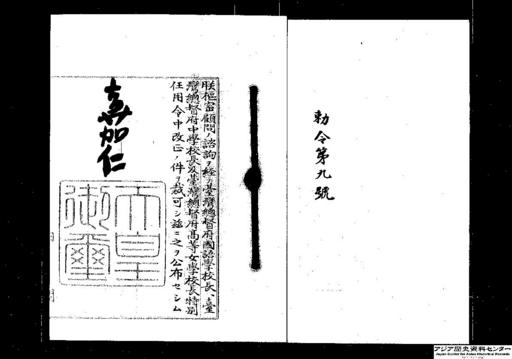 勅令第九號
朕樞密顧問ノ諮詢ヲ經テ臺灣總督府國語學校長、臺
灣總督府中學校長及臺灣總督府高等女學校長特別
任用令中改正ノ件ヲ裁可シ茲ニ之ヲ公布セシム
嘉仁
天皇
御璽
アジア歴史資料センター
Japan Center for Asian Historical Records